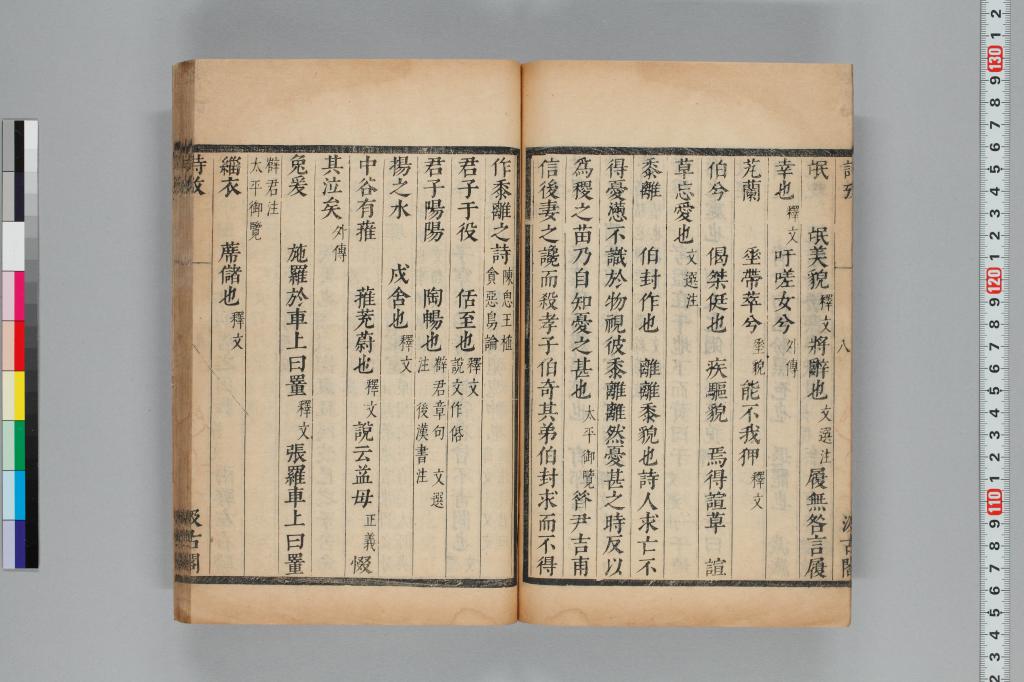 詩攷 八 汲古閣
氓 氓美貌釋文將辭也文選注履無咎言履
幸也釋文吁嗟女兮外傳
芄蘭 垂帶萃兮垂貌能不我狎釋文
伯兮 偈桀侹也 疾驅貌 焉得諠草 諠
草忘憂也文選注
黍離 伯封作也 離離黍貌也詩人求亡不
得憂懣不識於物視彼黍離離然憂甚之時反以
爲稷之苗乃自知憂之甚也太平御覽昝尹吉甫
信後妻之讒而殺孝子伯奇其弟伯封求而不得
作黍離之詩陳思王植貪惡鳥論
君子于役 佸至也釋文說文作佸
君子陽陽 陶暢也薛君章句 文選注 後漢書注
揚之水 戍舍也釋文
中谷有蓷 蓷茺蔚也釋文說云益母正義惙
其泣矣外傳
兔爰 施羅於車上曰罿釋文張羅車上曰罿
薛君注太平御覽
緇衣 蓆儲也釋文
詩攷 汲古閣